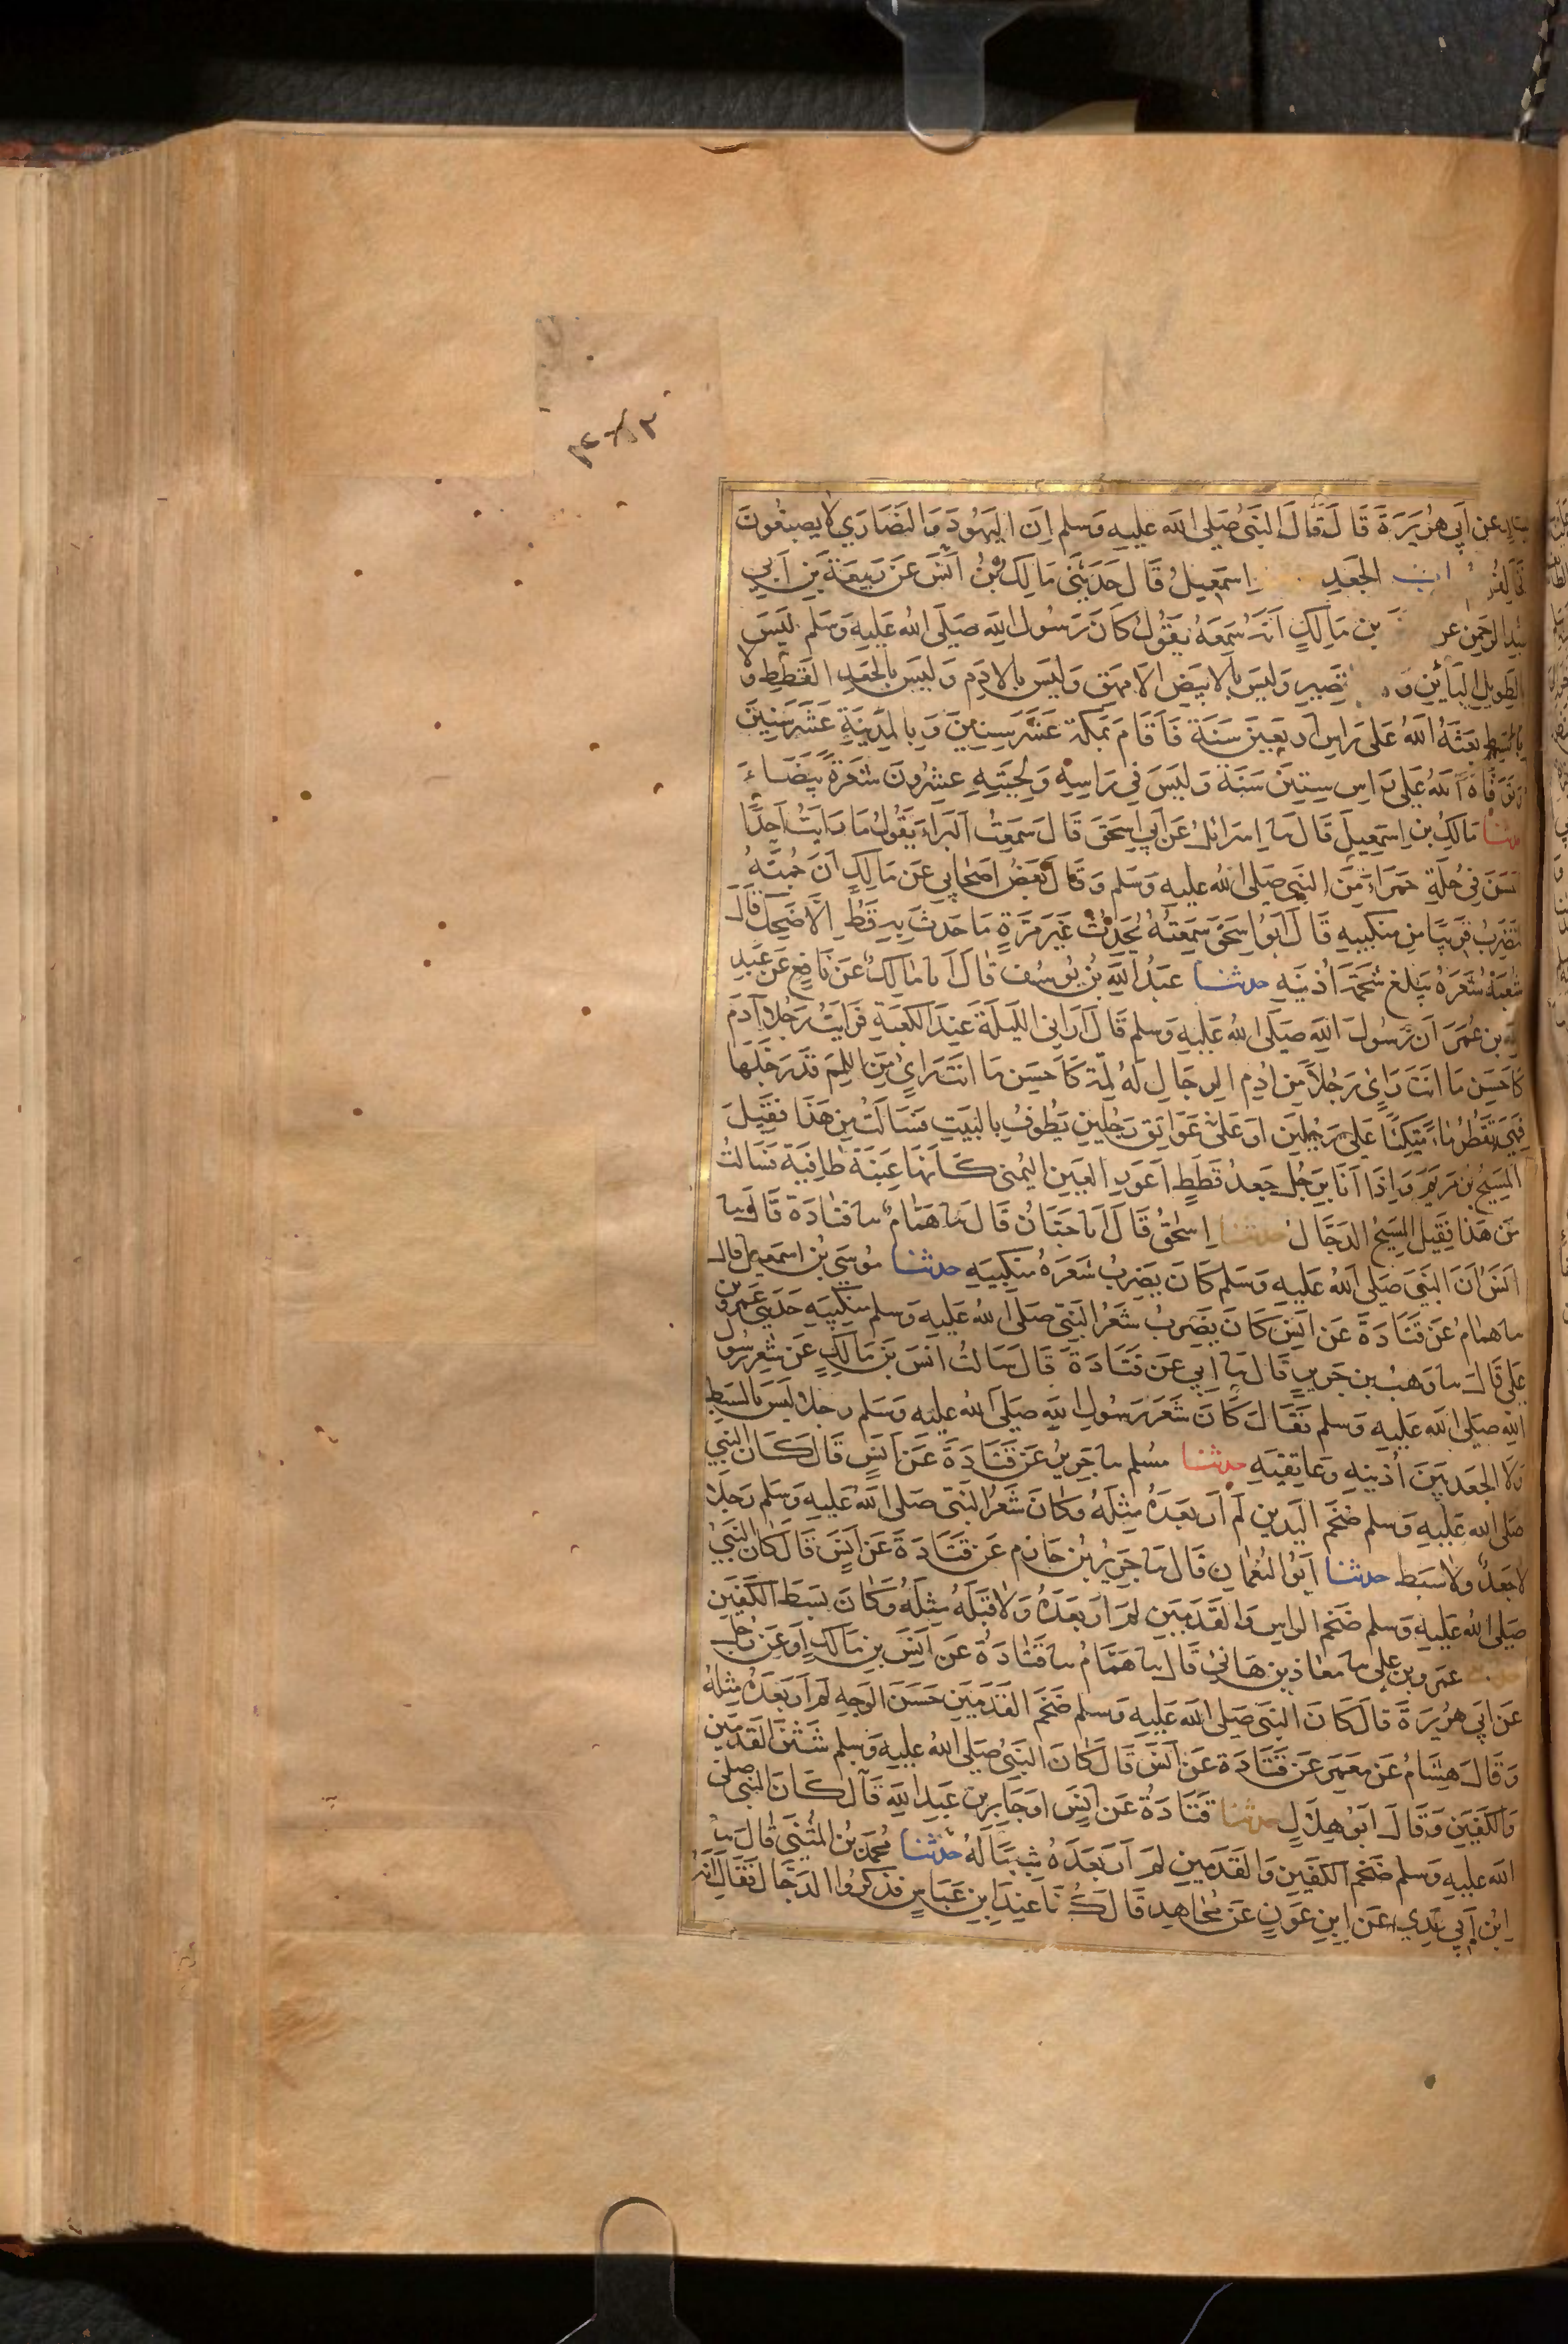 ٣
عن أبي هريرة قال قال النبي صلى الله عليه وسلم إن اليهود والنصارى لا يصبغون
الجعد اسمعيل قال حدثني مالك بن أنس عن ربيعة بن أبي
عبد الرحمن عن بن مالك أنه سمعه يقول كان رسول الله صلى الله عليه وسلم ليس
الطويل البائن قصير وليس بالابيض الامهق وليس بالادم وليس بالجعد القطط ولا
بالسبط بعثه الله على راس اربعين سنة فاقام بمكة عشر سنين وبالمدينة عشر سنين
وتوفاه الله على راس ستين سنة وليس في راسه ولحيته عشرون شعرة بيضاء
حدثنا مالك بن اسمعيل قال نا اسرائل عن أبي اسحق قال سمعت البراء يقول ما رايت احدا
احسن في حلة حمراء من النبي صلى الله عليه وسلم وقال بعض اصحابي عن مالك ان جمته
لتضرب قريبا من منكبيه قال ابو اسحق سمعته يحدث غير مرة ما حدث به قط الا ضحك قال
شعبة شعره يبلغ شحمة اذنيه حدثنا عبد الله بن يوسف قال انا مالك عن نافع عن عبد
الله بن عمر ان رسول الله صلى الله عليه وسلم قال اراني الليلة عند الكعبة فرايت رجلا آدم
كاحسن ما انت راى رجلا من ادم الرجال له لمة كاحسن ما انت راى من اللمم قد رجلها
فهي تقطر ماء متكئا على رجلين او على عواتق رجلين يطوف بالبيت فسالت من هذا فقيل
المسيح بن مريم واذا انا برجل جعد قطط اعور العين اليمنى كانها عنبة طافية فسالت
من هذا فقيل المسيح الدجال حدثنا اسحق قال انا حبان قال نا همام نا قتادة قال نا
انس ان النبي صلى الله عليه وسلم كان يضرب شعره منكبيه حدثنا موسى بن اسمعيل قال
نا همام عن قتادة عن انس كان يضرب شعر النبي صلى الله عليه وسلم منكبيه حدثني عمرو بن
علي قال نا وهب بن جرير قال نا أبي عن قتادة قال سالت انس بن مالك عن شعر رسول
الله صلى الله عليه وسلم فقال كان شعر رسول الله صلى الله عليه وسلم رجلا ليس بالسبط
ولا الجعد بين أذنيه وعاتقيه حدثنا مسلم نا جرير عن قتادة عن انس قال كان النبي
صلى الله عليه وسلم ضخم اليدين لم ار بعده مثله وكان شعر النبي صلى الله عليه وسلم رجلا
لا جعد ولا سبط حدثنا ابو النعمان قال نا جرير بن حازم عن قتادة عن انس قال كان النبي
صلى الله عليه وسلم ضخم الراس والقدمين لم ار بعده ولا قبله مثله وكان بسط الكفين
عمرو بن علي نا معاذ بن هانئ قال نا همام نا قتادة عن انس بن مالك او عن رجل
عن أبي هريرة قال كان النبي صلى الله عليه وسلم ضخم القدمين حسن الوجه لم ار بعده مثله
وقال هشام عن معمر عن قتادة عن انس قال كان النبي صلى الله عليه وسلم شثن القدمين
والكفين وقال ابو هلال حدثنا قتادة عن انس او جابر بن عبد الله قال كان النبي صلى
الله عليه وسلم ضخم الكفين والقدمين لم ار بعده شبها له حدثنا محمد بن المثنى قال نا
ابن أبي عدي عن ابن عون عن مجاهد قال كنا عند ابن عباس فذكروا الدجال فقال انه